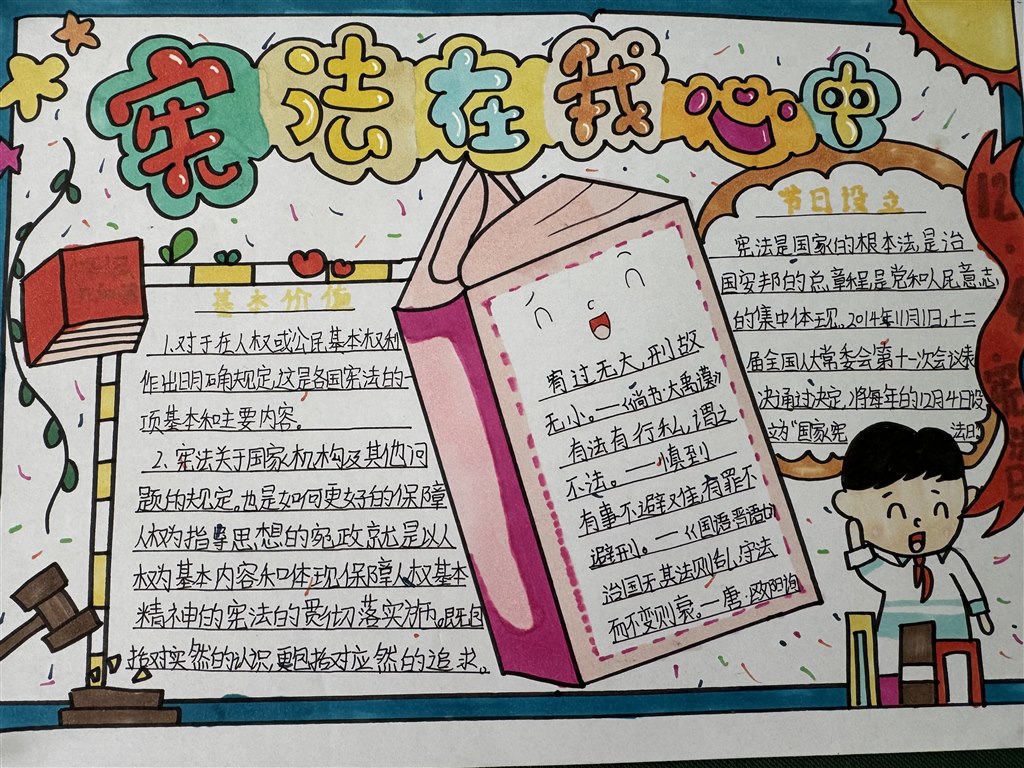 宪法在我心中
基本价值
1.对于在人权或公民基本权利
作出明确规定,这是各国宪法的一
项基本和主要内容。
2.宪法关于国家机构及其他问
题的规定。也是如何更好的保障
人权为指导思想的宪政就是以人
权为基本内容和体现保障人权基本
精神的宪法的贯彻落实施。既包
括对实然的认识,更包括对应然的追求。
宥过无大,刑故
无小。——《尚书·大禹谟》
有法有行私,谓之
不法。——慎到
有事不避难,有罪不
避刑。——《国语·晋语七》
治国无其法则乱,守法
而不变则衰。——唐·欧阳询
节日设立
宪法是国家的根本法,是治
国安邦的总章程,是党和人民意志
的集中体现。2014年11月1日,十二
届全国人大常委会第十一次会议表
决通过决定,将每年的12月4日设
立为“国家宪 法日”